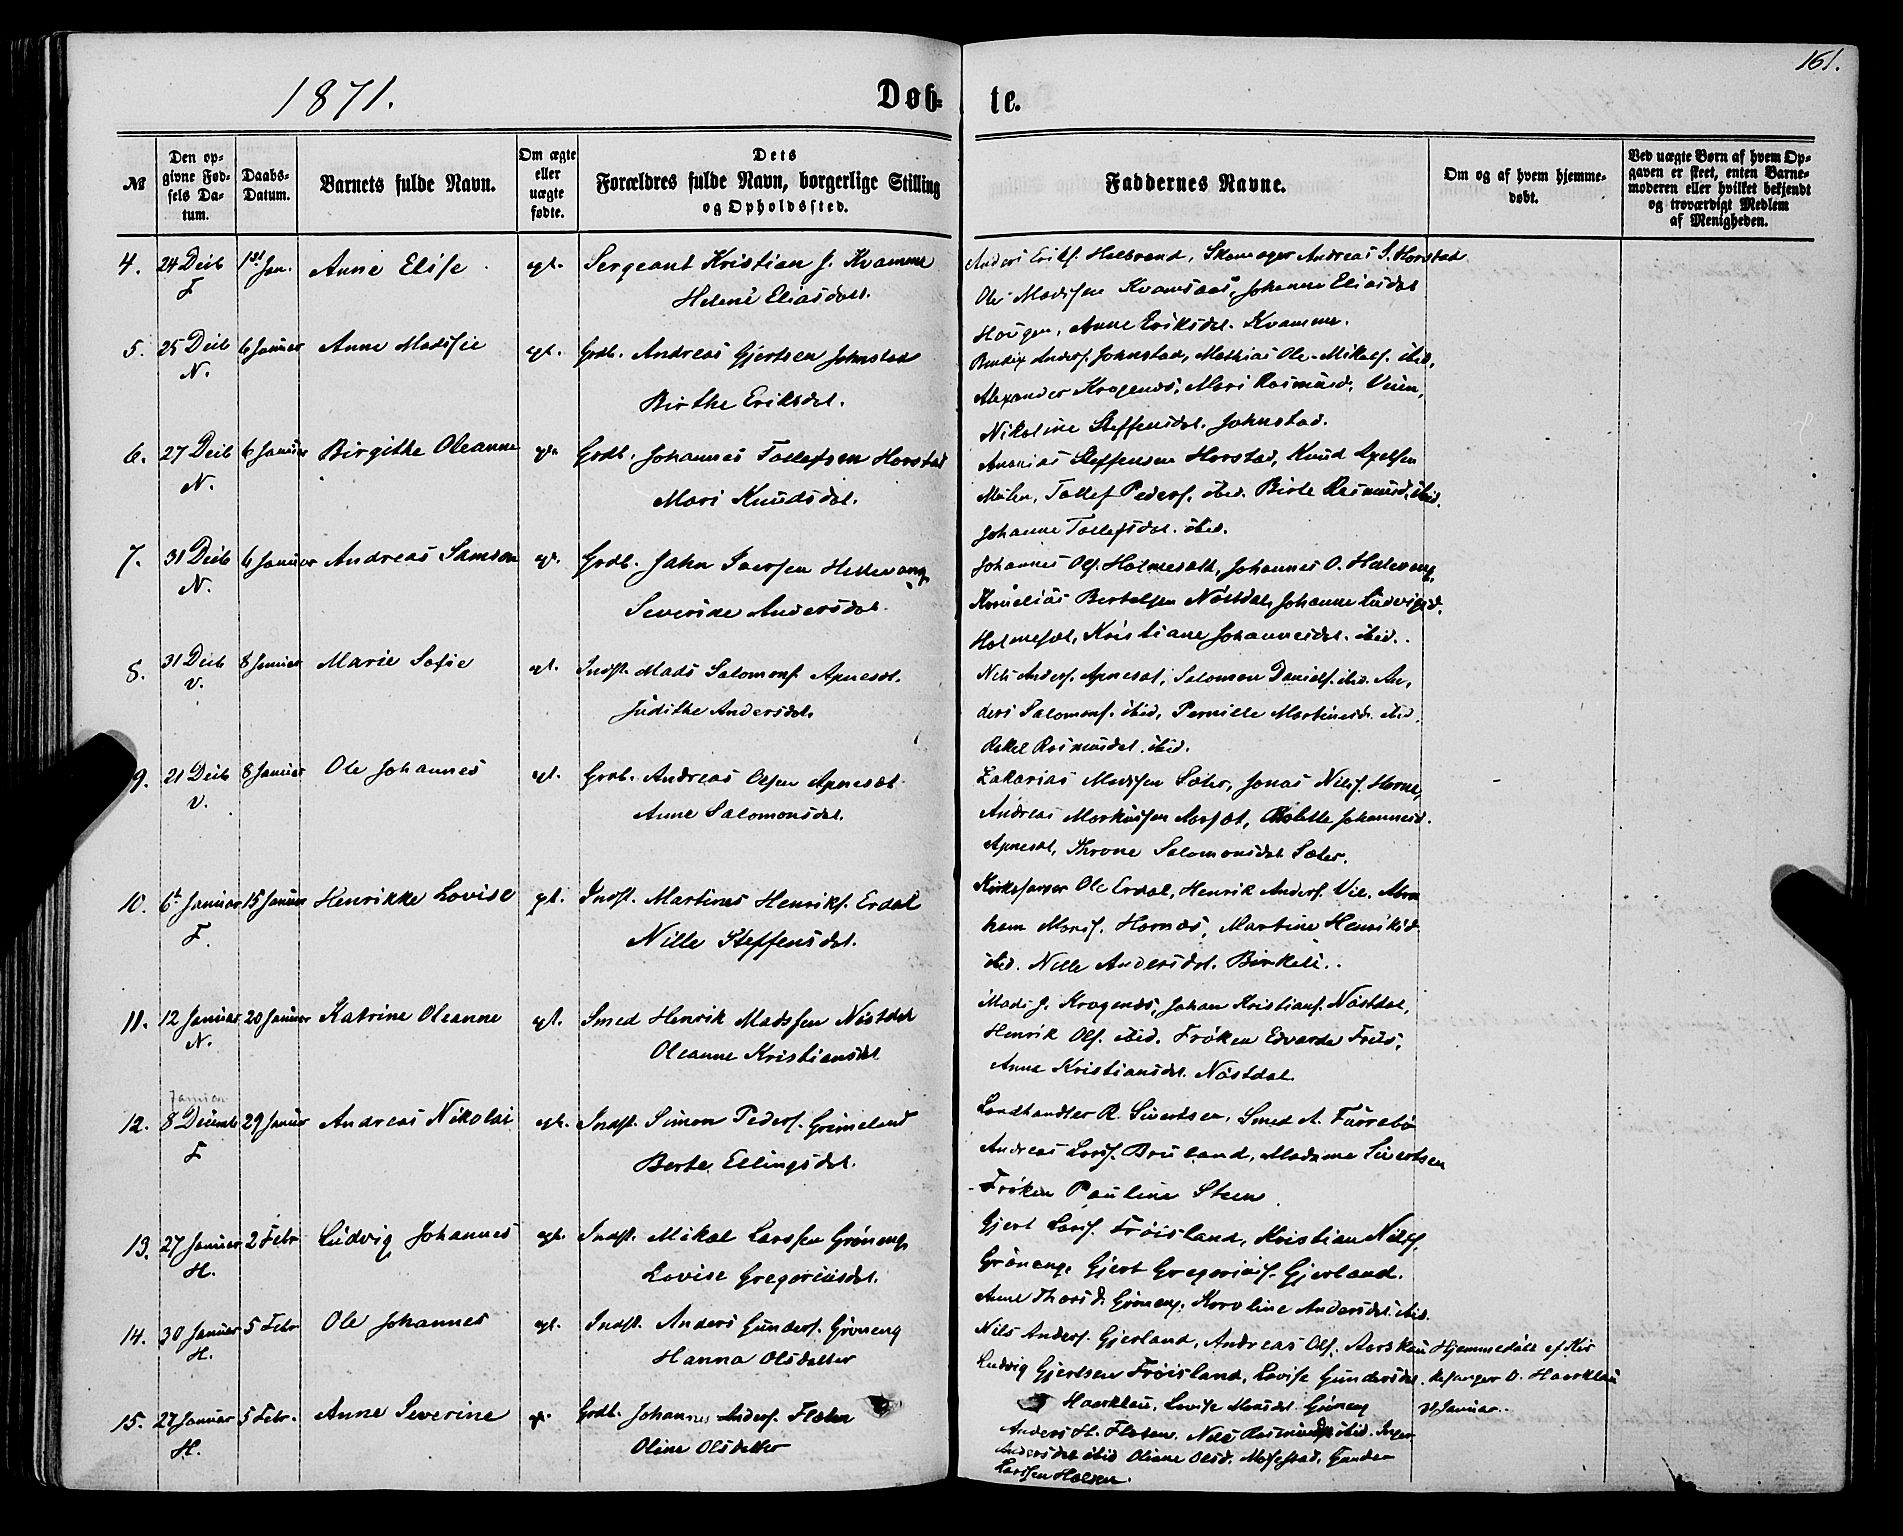 161.
1871.
Døb- te.
№
Den opgivne Fødsels Datum.
Daabs-Datum.
Barnets fulde Navn.
Om ægte eller uægte fødte.
Dets Forældres fulde Navn, borgerlige Stilling og Opholdssted.
Faddernes Navne.
Om og af hvem hjemmedøbt.
Ved uægte Børn af hvem Opgaven er skeet, enten Barnemoderen eller hvilket bekjendt og troværdigt Medlem af Menigheden.
4. 24 Decb 1st Jan. Anne Elise egt. Sergeant Kristian J. Kvamme
F Helene Eliasdat.
Anders Eriks. Halbrend, Skomager Andreas S. Horstad
Ole Madssen Kvamsaas, Johanne Eliasdat
Hougen, Anne Eriksdat. Kvamme.
5. 25 Decb 6 Januar Anne Madsie egt. Grdb. Andreas Gjertsen Johnstad
N. Birthe Eriksdat.
Bendix Anders. Johnstad, Mathias Ole-Mikels. ibid,
Alexander Kragenæs, Mari Rasmusd. Veien,
Nikoline Steffensdat. Johnstad.
6. 27 Decb 6 Januar Birgithe Oleanne egt. Grdb. Johannes Tollefsen Horstad
N. Mari Knudsdat.
Ananias Steffensen Horstad, Knud Axelsen
Mulen, Tollef Peders. ibid. Birte Rasmusd. ibid.
Johanne Tollefsdat. ibid.
7. 31 Decb 6 Januar Andreas Samson egt. Grdb. John Iversen Hellevang
N. Severine Andersdat.
Johannes Ols. Holmesæt, Johannes O. Helevang,
Kornelius Bertelsen Nøstdal, Johanne Ludvigsd.
Holmesæt, Kristiane Johannesdat. ibid.
8. 31 Decb 8 Januar Marie Sofie egt. Indst. Mads Salomons. Apnesæt.
V. Judithe Andersdat.
Nils Anders. Apnesæt, Salomon Daniels. ibid. An-
ders Salomons. ibid, Pernille Martinusd. ibid,
Rakel Rasmusdat. ibid.
9. 21 Decb 8 Januar Ole Johannes egt. Grdb. Andreas Olsen Apnesæt
V. Anne Salomonsdat.
Zakarias Madssen Sæter, Jonas Nils. Horne,
Andreas Markussen Aarsæt, Johannesd.
Apnesæt, Throne Salomonsdat Sæter.
10. 6t Januar 15 Januar Henrikke Lovise egt. Indst. Martinus Henriks. Erdal
F. Nille Steffensdat.
Kirkesanger Ole Erdal, Henrik Anders. Vie. Abra
ham Mons. Hornæs, Martine Henriksd.
ibid. Nille Andersdat. Birkeli.
11. 12 Januar 20 Januar Katrine Oleanne egt. Smed Henrik Madssen Nøstdal
N. Oleanne Kristiansdat
Mads J. Kragenæs, Johan Kristians. Nøstdal,
Henrik Ols. ibid. Frøken Edvarda Friis,
Anna Kristiansdat. Nøstdal.
Januar
12. 8 Decemb 29 Januar Andreas Nikolai egt. Indst. Simon Peders. Grimeland
F Berte Ellingsdat.
Landhandler R. Sivertsen, Smed A. Furrebø
Andreas Lars. Bruland, Madame Sivertsen
Frøken Pauline Steen
13. 27 Januar 2 Febr Ludvig Johannes egt. Indst. Mikal Larssen Grøneng
H. Lovise Gregoriusdat.
Gjert Lars. Frøisland, Kristian Nils.
Grøneng, Gjert Gregorius. Gjerland.
Anne Thorsd. Grøneng, Karoline Andersdat. ibid.
14. 30 Januar 5 Febr Ole Johannes egt. Indst. Anders Gunders. Grøneng
H. Hanna Olsdatter
Nils Anders. Gjerland, Andreas Ols. Aarskau
Ludvig Gjertsen Frøisland, Lovise Gundersdat.
Haarklau, Lovise Monsdat. Grøneng
Hjemmedøbt af Kir
kesanger O. Haarklau
31 Januar.
15. 27 Januar 5 Febr. Anne Severine egt. Grdb. Johannes Anders. Flaten
H. Oline Olsdatter
Anders H. Flaten, Nils Rasmus ibid. Inger
Andersdat ibid Oliane Olsd. Gunder
Larssen Halsen.